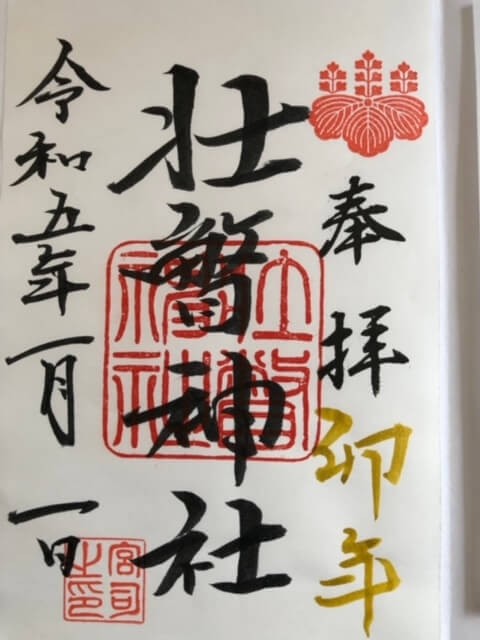 奉拝
卯年
壮瞥神社
壮瞥
神社
令和五年一月一日
宮司
之印